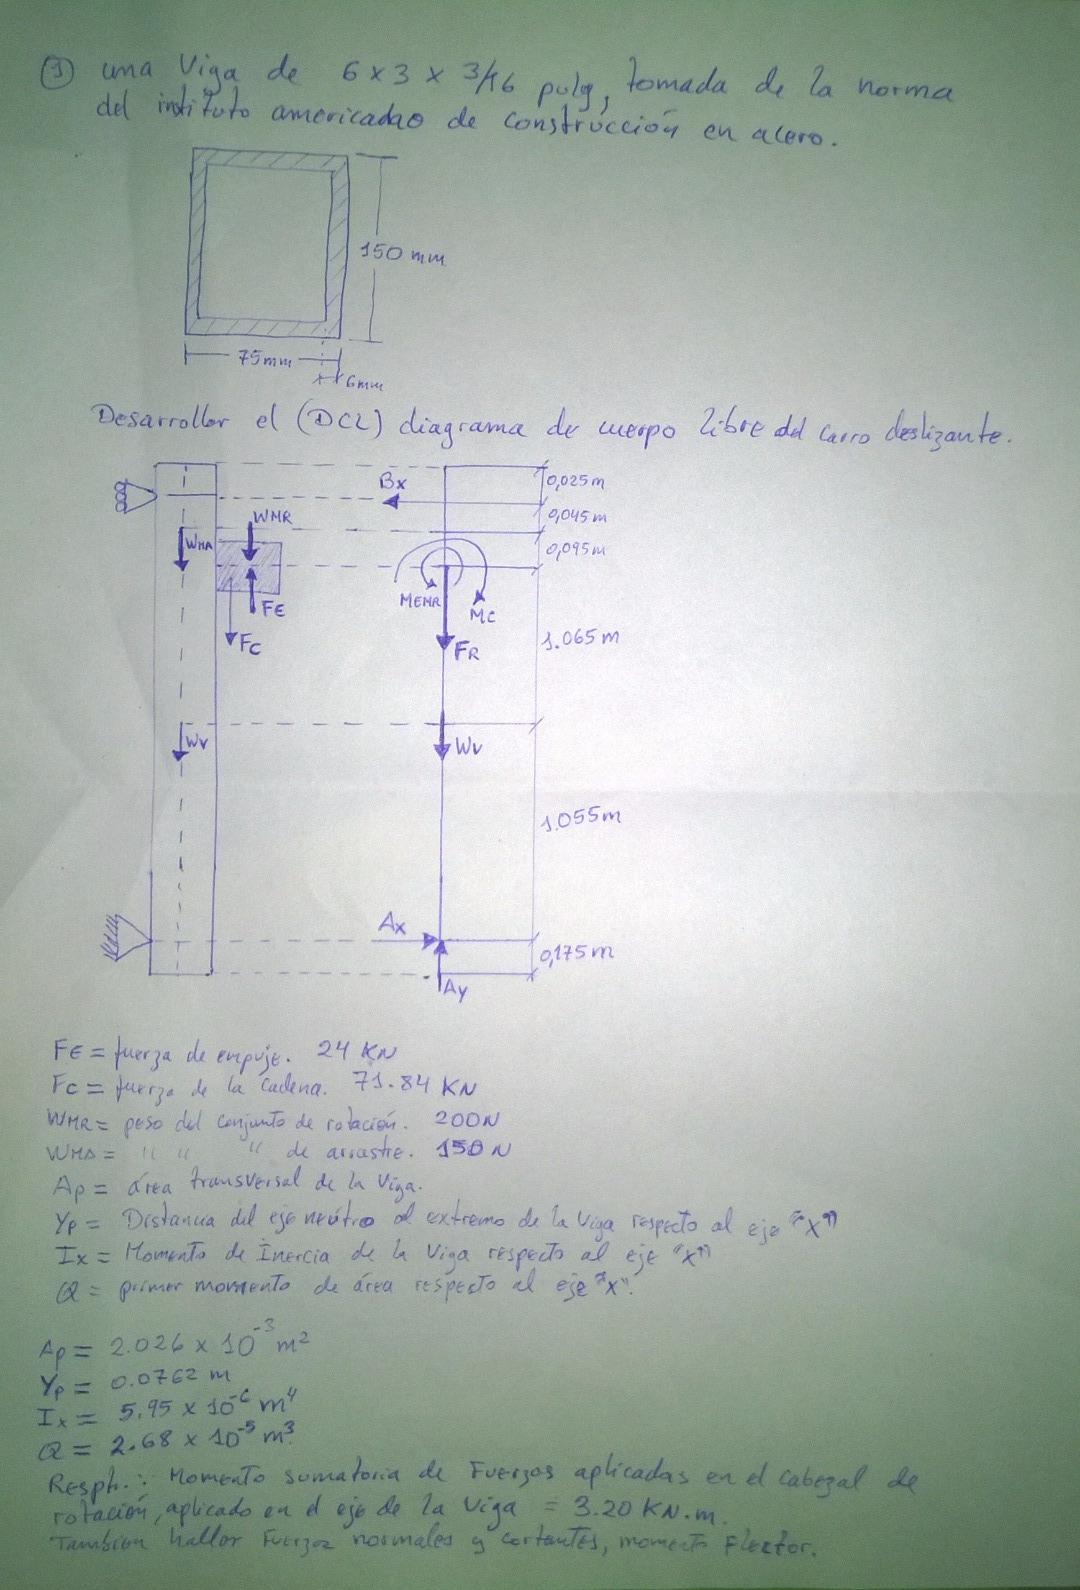 ① una Viga de 6 x 3 x 3/16 pulg, tomada de la norma
del instituto americadno de construcción en acero.
150 mm
75mm
6mm
Desarrollar el (DCL) diagrama de cuerpo libre del carro deslizante.
Bx
0,025m
0,045m
WMR
WMA
0,095m
FE
MEMR
MC
FC
FR
1.065m
Wv
Wv
1.055m
Ax
0,175m
Ay
FE = fuerza de empuje. 24 KN
Fc = fuerza de la cadena. 71.84 KN
WMR = peso del conjunto de rotación. 200N
WMA = " " " de arrastre. 150 N
Ap = área transversal de la Viga.
Yp = Distancia del eje neutro al extremo de la Viga respecto al eje "x"
Ix = Momento de Inercia de la Viga respecto al eje "x"
Q = primer momento de área respecto al eje "x".
Ap = 2.026 x 10⁻³ m²
Yp = 0.0762 m
Ix = 5.95 x 10⁻⁶ m⁴
Q = 2.68 x 10⁻⁵ m³.
Respt.: Momento sumatoria de Fuerzas aplicadas en el cabezal de
rotación, aplicado en el eje de la Viga = 3.20 KN.m.
Tambien hallar Fuerzas normales y cortantes, momento Flector.